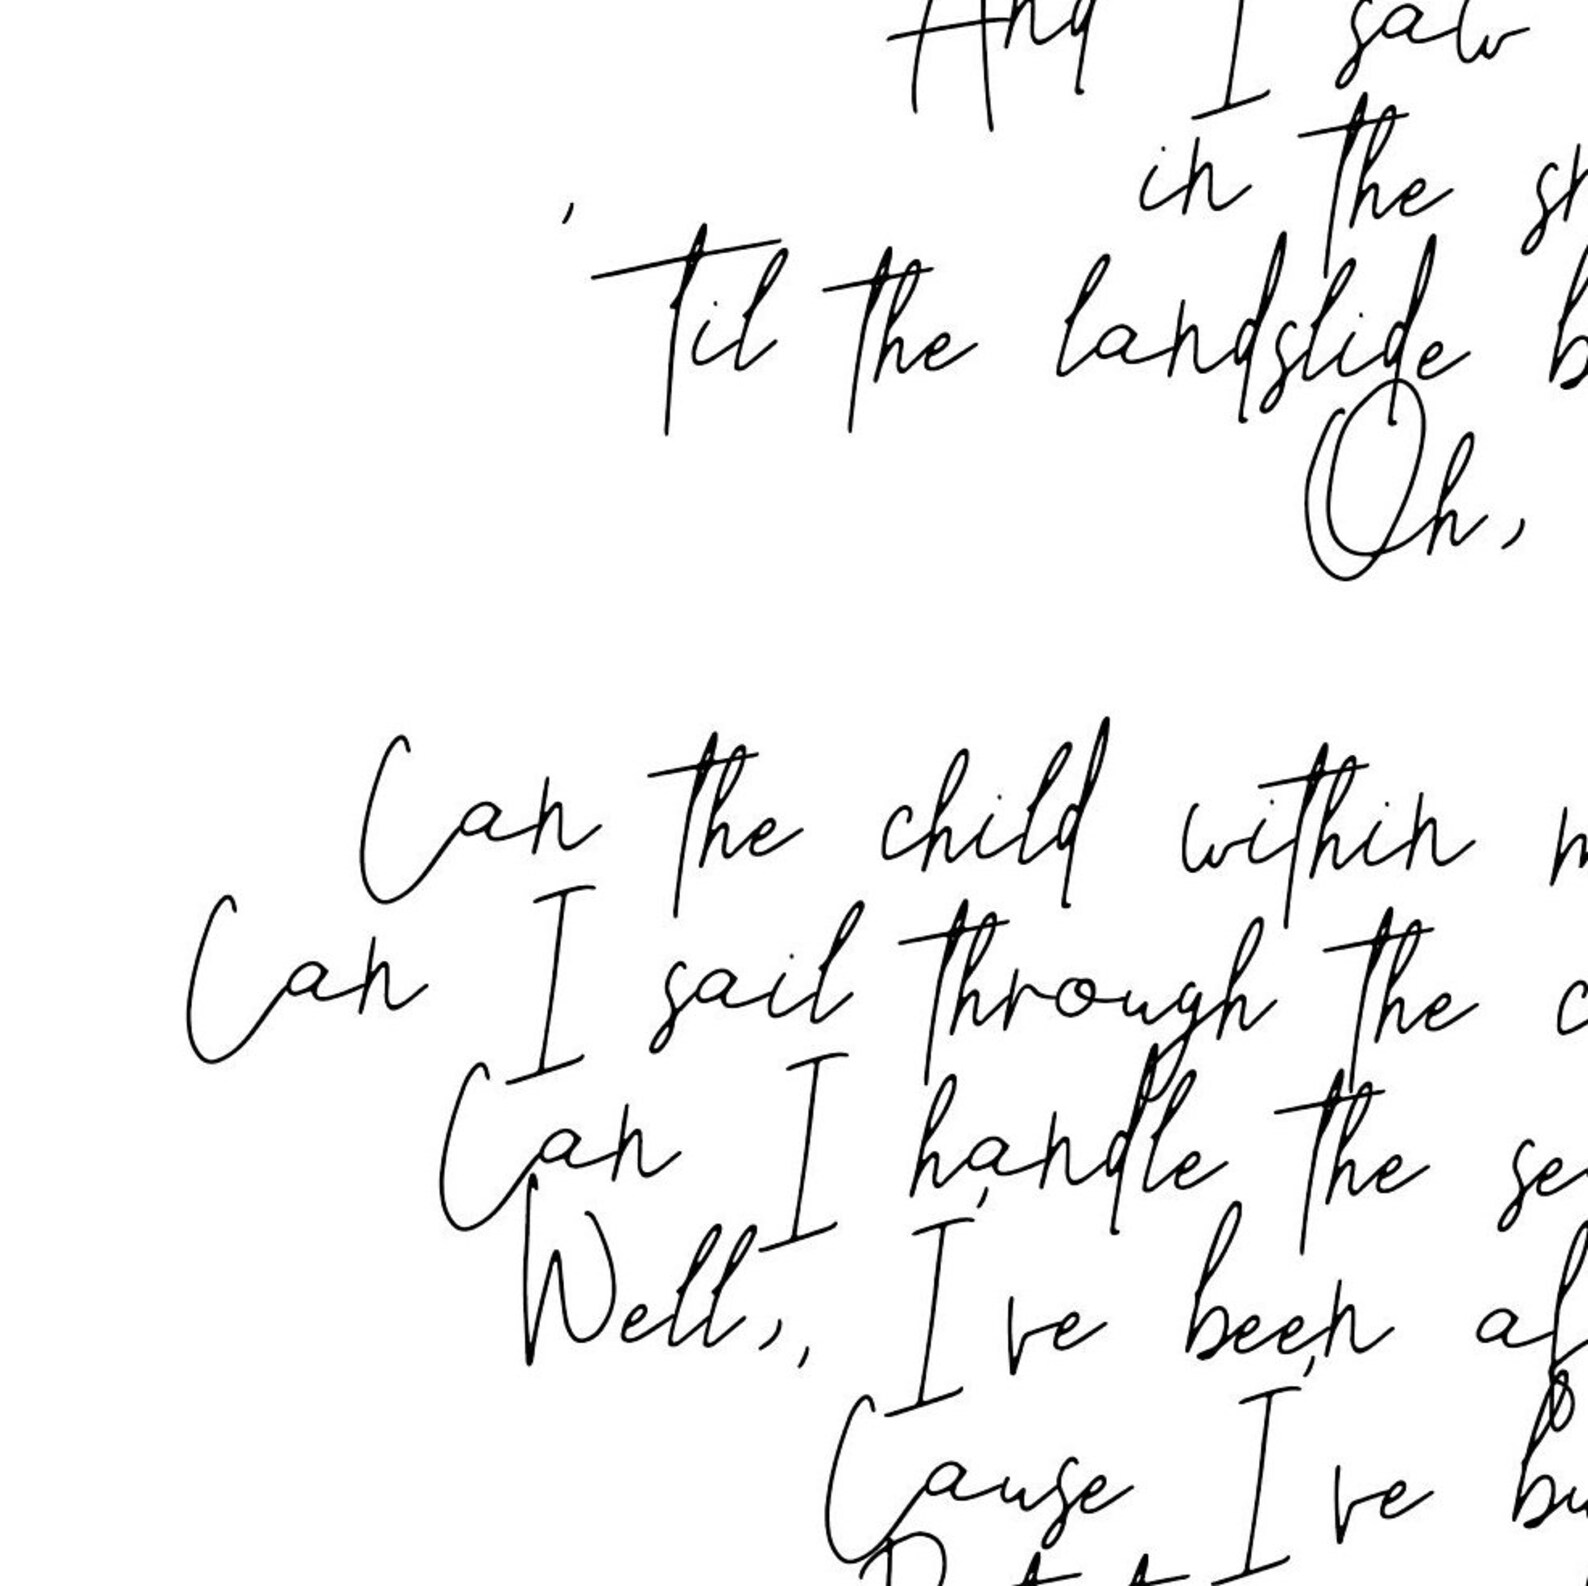 And I saw
in the sh
'Til the landslide b
Oh,
Can the child within m
Can I sail through the c
Can I handle the se
Well, I've been af
'Cause I've bu